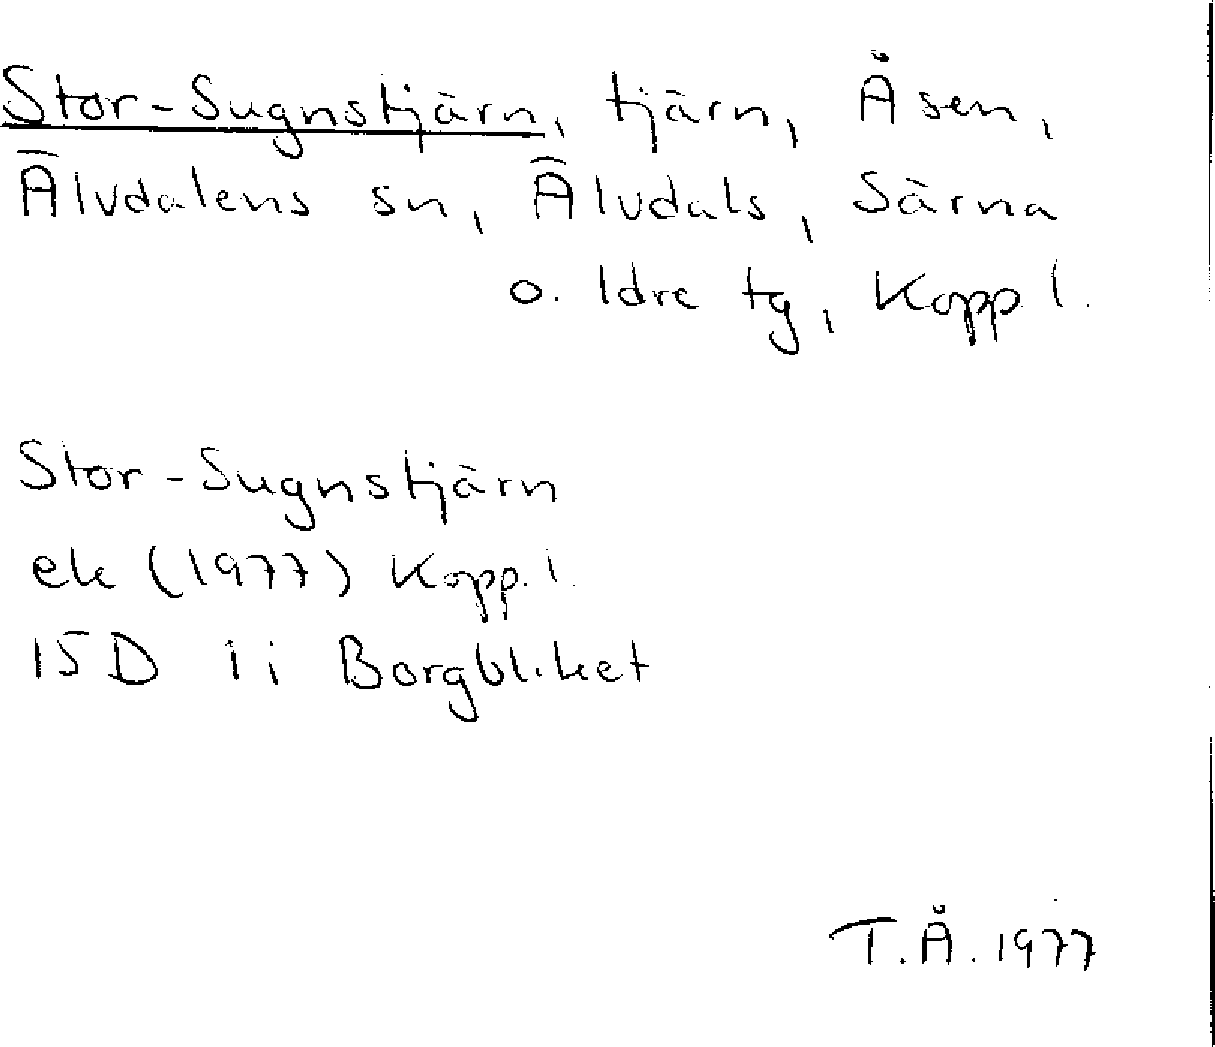 Stor-Sugnstjärn, tjärn, Åsen,
Älvdalens sn, Älvdals, Särna
o. Idre tg, Kopp l.
Stor-Sugnstjärn
ek (1977) Kopp. l.
15D 1i Borgbliket
T.Å. 1977